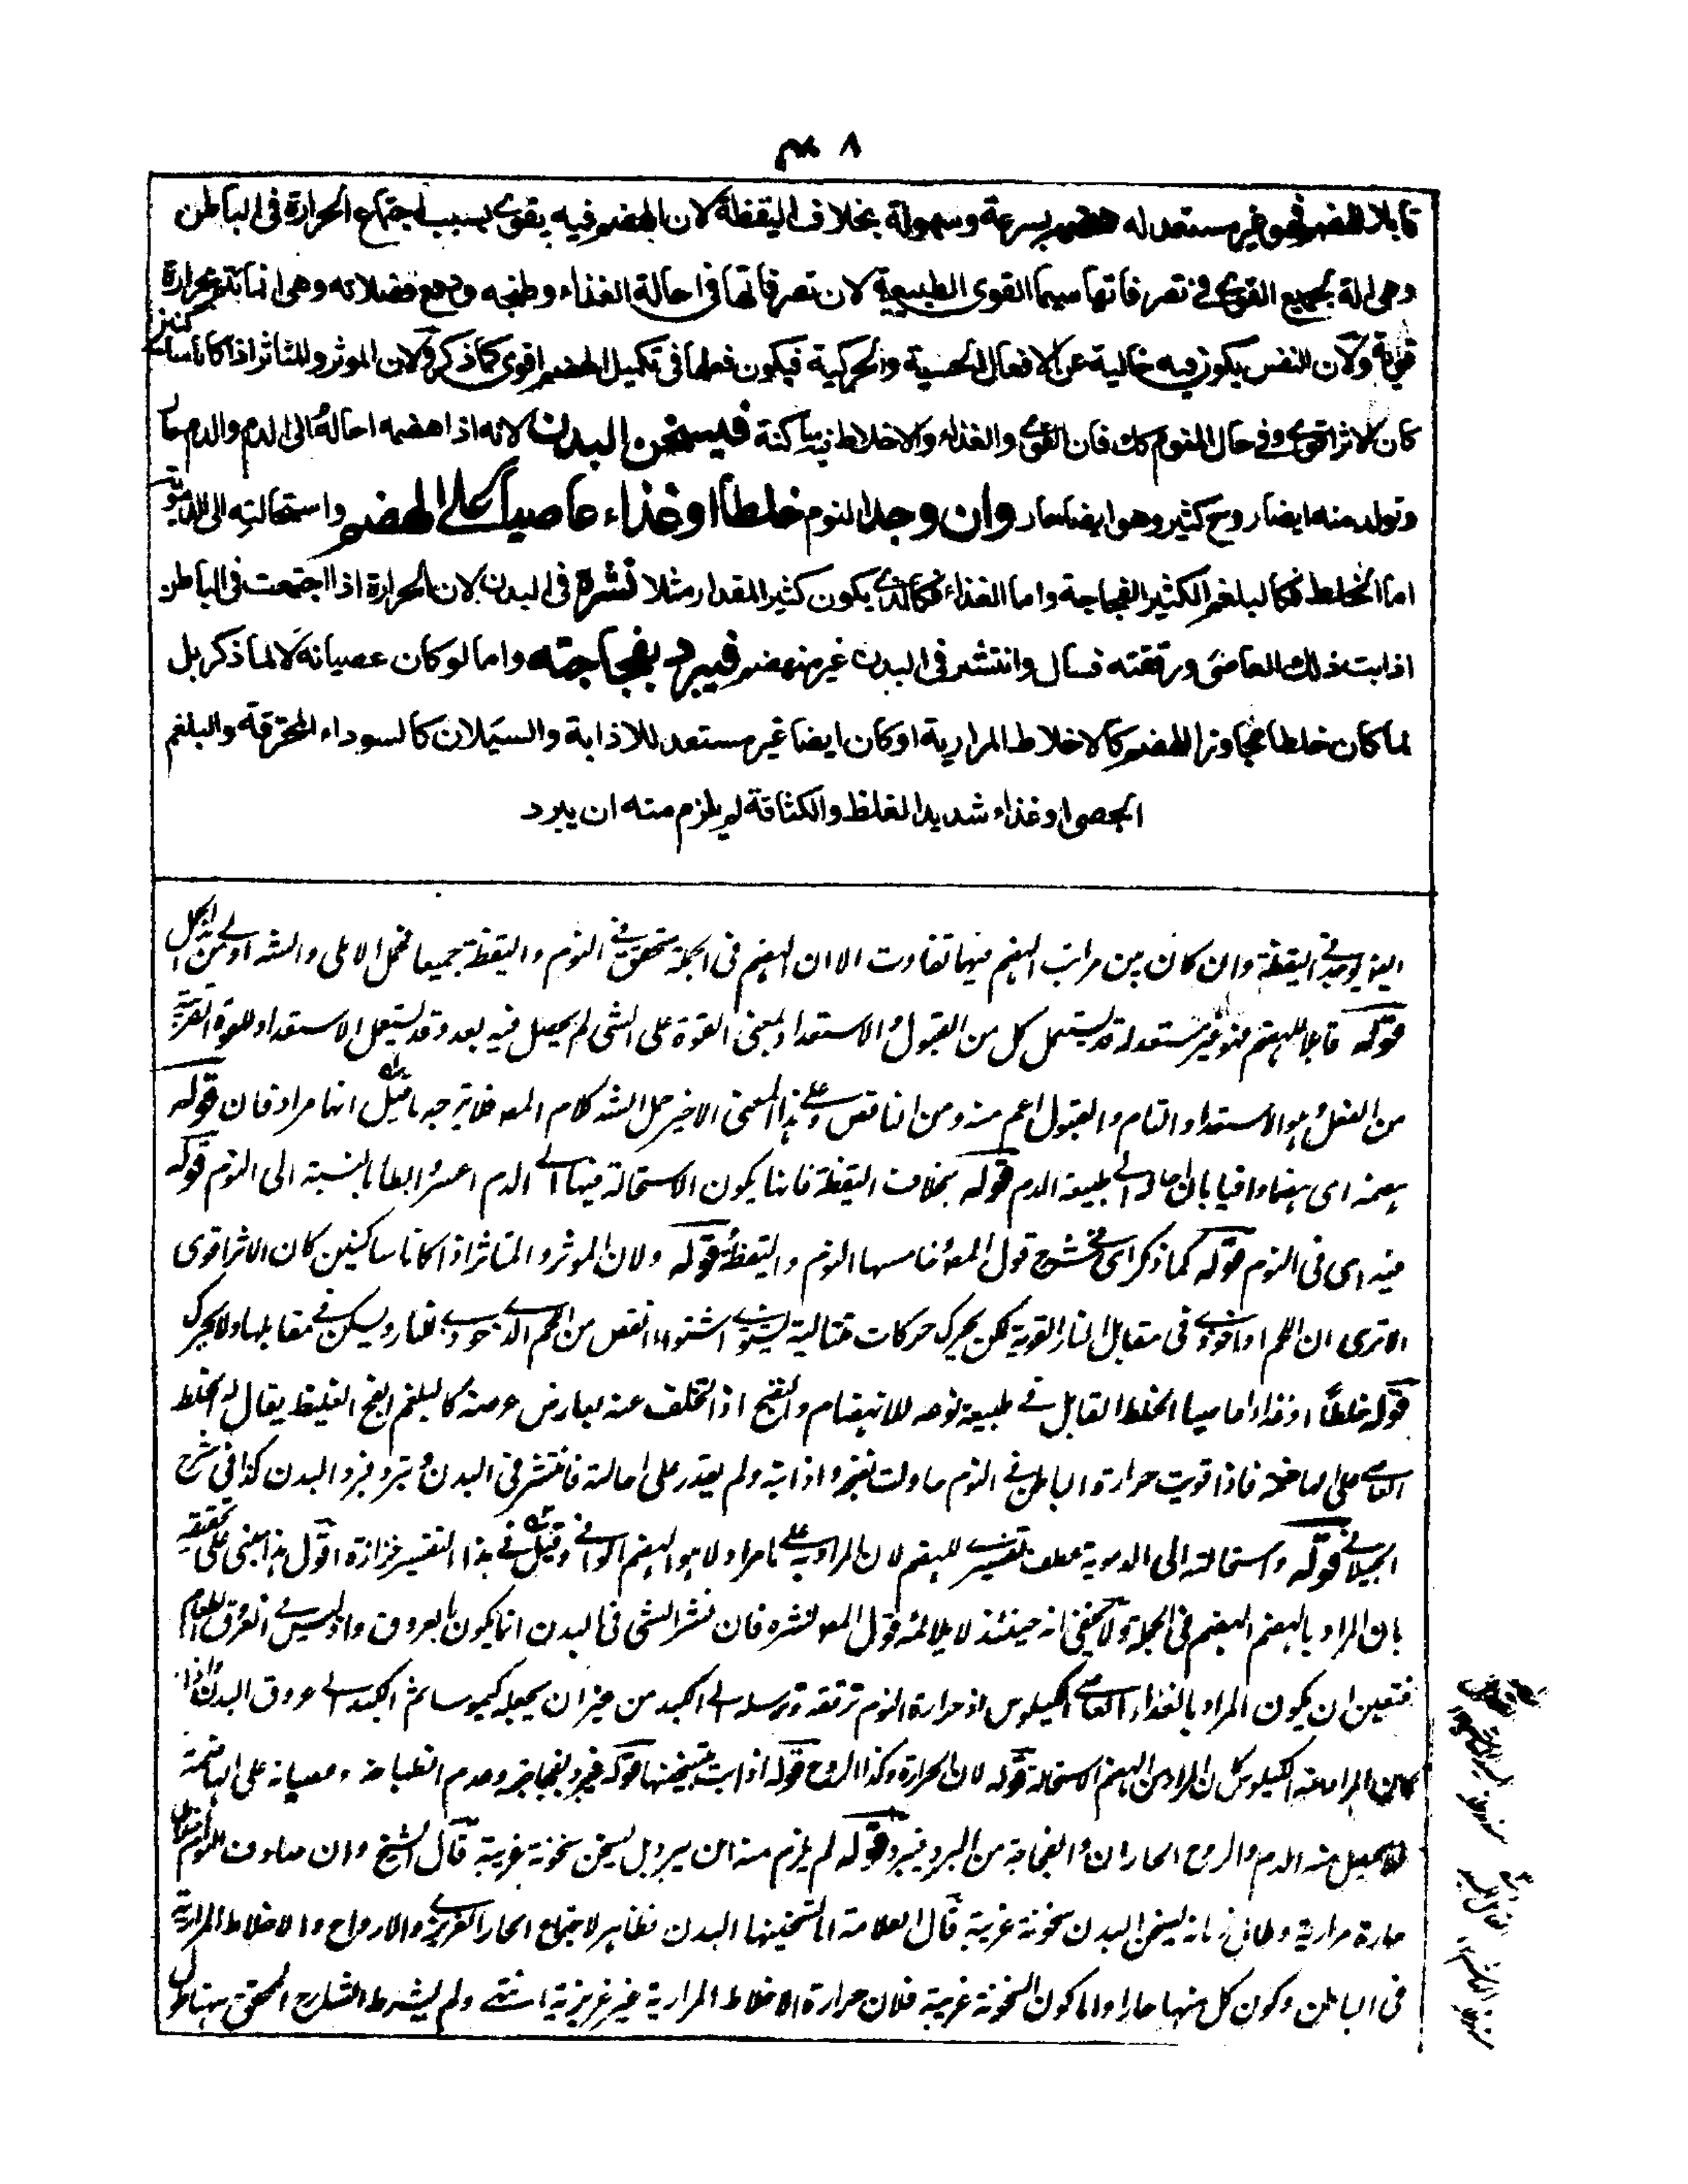 ٨ ٣
قابلا للهضم فهو غير مستعد له هضم بسرعة وسهولة بخلاف اليقظة لان الهضم فيه يقوى بسبب اجتماع الحرارة فى الباطن
وهى الة لجميع القوى فى تصرفاتها سيما القوى الطبيعية لان تصرفاتها فى احالة الغذاء وطبخه ودفع فضلاته وهى انما تتم بحرارة
قوية ولان النفس يكون فيه خالية عن الافعال الحسية والحركية فيكون فعلها فى تكميل الهضم اقوى كما ذكر ولان الموثر والمتاثر اذا كانا ساكنين
كان الاثر اقوى وفى حال النوم كك فان القوى والغذاء والاخلاط فيه ساكنة فيسخن البدن لانه اذا هضمه احاله الى الدم والدم حار
وتولد منه ايضا روح كثير وهو ايضا حار وان وجد النوم خلطا او غذاء عاصيا على الهضم واستحالته الى الدموية
اما الخلط فكالبلغم الكثير الفجاجة واما الغذاء فكالذى يكون كثير المقدار مثلا نشره فى البدن لان الحرارة اذا اجتمعت فى الباطن
اذابت ذلك العاصى ورققته فسال وانتشر فى البدن غير منهضم فيبرد بفجاجته واما لو كان عصيانه لا لما ذكر بل
لما كان خلطا مجاوزا الهضم كالاخلاط المرارية او كان ايضا غير مستعد للاذابة والسيلان كالسوداء المحترقة والبلغم
الجصى او غذاء شديد الغلظ والكثافة لم يلزم منه ان يبرد
يوجد فى اليقظة وان كان بين مراتب الهضم فيهما تفاوت الا ان الهضم فى الجملة متحقق فى النوم واليقظة جميعا فحمل الاملى والشه اولى من
قوله قابلا للهضم فهو غير مستعد له قد يستعمل كل من القبول والاستعداد بمعنى القوة على الشى لم يحصل فيه بعد وقد يستعمل الاستعداد للقوة القريبة
من الفعل وهو الاستعداد التام والقبول اعم منه ومن الناقص وعلى هذا المعنى الاخير حمل الشه كلام المصه فلا يرجه ما قيل انهما مراد فان قوله
هضمه اى هضما وافيا بان احاله الى طبيعة الدم قوله بخلاف اليقظة فانها يكون الاستحالة فيها الى الدم اعسر وابطا بالنسبة الى النوم قوله
فيه اى فى النوم قوله كما ذكر اى فى شرح قول المصه خامسها النوم واليقظة قوله ولان الموثر والمتاثر اذا كانا ساكنين كان الاثر اقوى
الا ترى ان اللحم اذا شوى فى مقابل النار القوية لكن يحرك حركات متتالية يستوى اشتواء انقص من اللحم الذى يحوذى بالنار ويسكن فى مقابلها ولا يحرك
قوله خلطا او غذاء عاصيا الخلط القابل فى طبيعة نوعه للانهضام والنضج اذا تخلف عنه لعارض عرضه كالبلغم الفج الغليظ يقال له الخلط
العاصى على الهاضمة فاذا قويت حرارة الباطن فى النوم حاولت نضجه واذابته ولم يقدر على احالته فانتشر فى البدن وتبرد فبرد البدن كذا فى شرح
الجيلانى قوله واستحالته الى الدموية عطف تفسيرى للهضم لان المراد به على ما مراد لا هو الهضم الوافى وقيل فى هذا التفسير حزازة اقول هذا مبنى على تحقيقه
بان المراد بالهضم الهضم فى الجملة ولا يخفى انه حينئذ لا يلائمه قول المصه نشره فان نشر الشى فى البدن انما يكون بالعروق وليس فى العرق الطعام
فتعين ان يكون المراد بالغذاء العاصى الكيلوس اذ حرارة النوم ترققه وترسله الى الكبد من غير ان يجعله كيموسا ثم الكبد الى عروق البدن واذا
كان المراد منه الكيلوس كان المراد من الهضم الاستحالة قوله لان الحرارة وكذا الروح قوله اذابت بتسخينها قوله فيبرد بفجاجته وعدم انطباخه وعصيانه على الهاضمة
لا يحصل منه الدم والروح الحاران والفجاجة من البرد فيبرد قوله لم يلزم منه ان يبرد بل يسخن سخونة غريبة قال الشيخ وان صادف النوم اخلاطا
حارة مرارية وطال زمانه ليسخن البدن سخونة غريبة قال العلامة اما تسخينها البدن فظاهر لاجتماع الحار الغريزى والارواح والاخلاط المرارية
فى الباطن وكون كل منها حارا واما كون السخونة غريبة فلان حرارة الاخلاط المرارية غير غريزية انتهى ولم يشترط الشارح المحقق ههنا طول